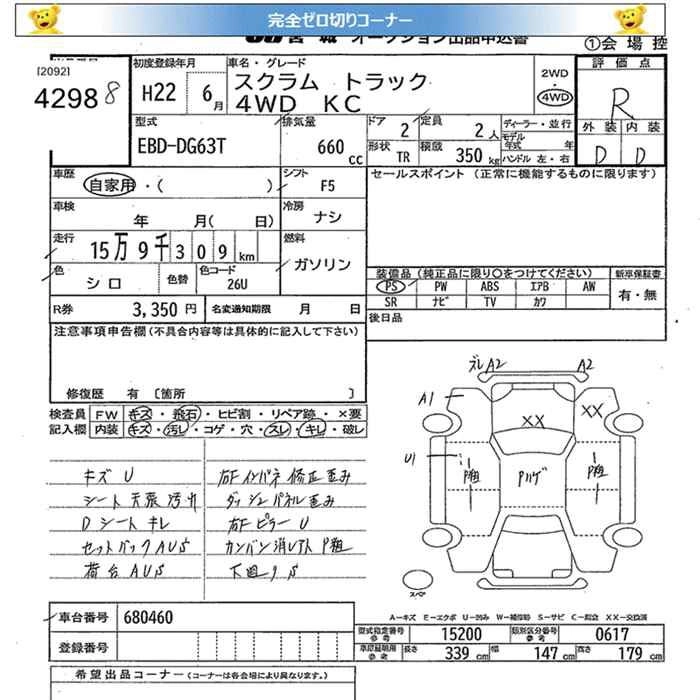 完全ゼロ切りコーナー
オークション出品申込書
①会場控
[2092]
4298 8
初度登録年月
H22 6月
車名・グレード
スクラム トラック
4WD KC
2WD
4WD
評価点
R
外装 内装
D D
型式
EBD-DG63T
排気量
660 CC
ドア 2
定員 2人
形状 TR
積載 350 kg
ディーラー・並行
モデル年式 年
ハンドル 左・右
車歴
自家用・( )
シフト F5
セールスポイント (正常に機能するものに限ります)
車検
年 月( 日)
冷房 ナシ
走行
15万9千309 km
燃料
ガソリン
色
シロ
色替
色コード
26U
装備品 (純正品に限り〇をつけてください)
新車保証書
PS PW ABS エアB AW
有・無
SR ナビ TV カワ
R券 3,350 円
名変通知期限 月 日
後日品
注意事項申告欄 (不具合内容等は具体的に記入して下さい)
修復歴 有 〔箇所 〕
検査員 FW キズ・飛石・ヒビ割・リペア跡・×要
記入欄 内装 キズ・汚レ・コゲ・穴・スレ・キレ・破レ
ズレ A2 A2
A1
XX XX
U1
P粗 Pハゲ P粗
スペア
キズ U
シート 天張 汚れ
D シート キレ
セットバック AUS
荷台 AUS
右F インパネ 修正 歪み
ダッシュパネル 歪み
右F ピラー U
カンバン消し下 P粗
下廻り S
A-キズ E-エクボ U-凹み W-補修跡 S-サビ C-腐食 XX-交換済
車台番号 680460
登録番号
型式指定番号 参考 15200
類別区分番号 参考 0617
車庫証明用 参考 長さ 339 cm 幅 147 cm 高さ 179 cm
希望出品コーナー (コーナーは各会場により異なります。)